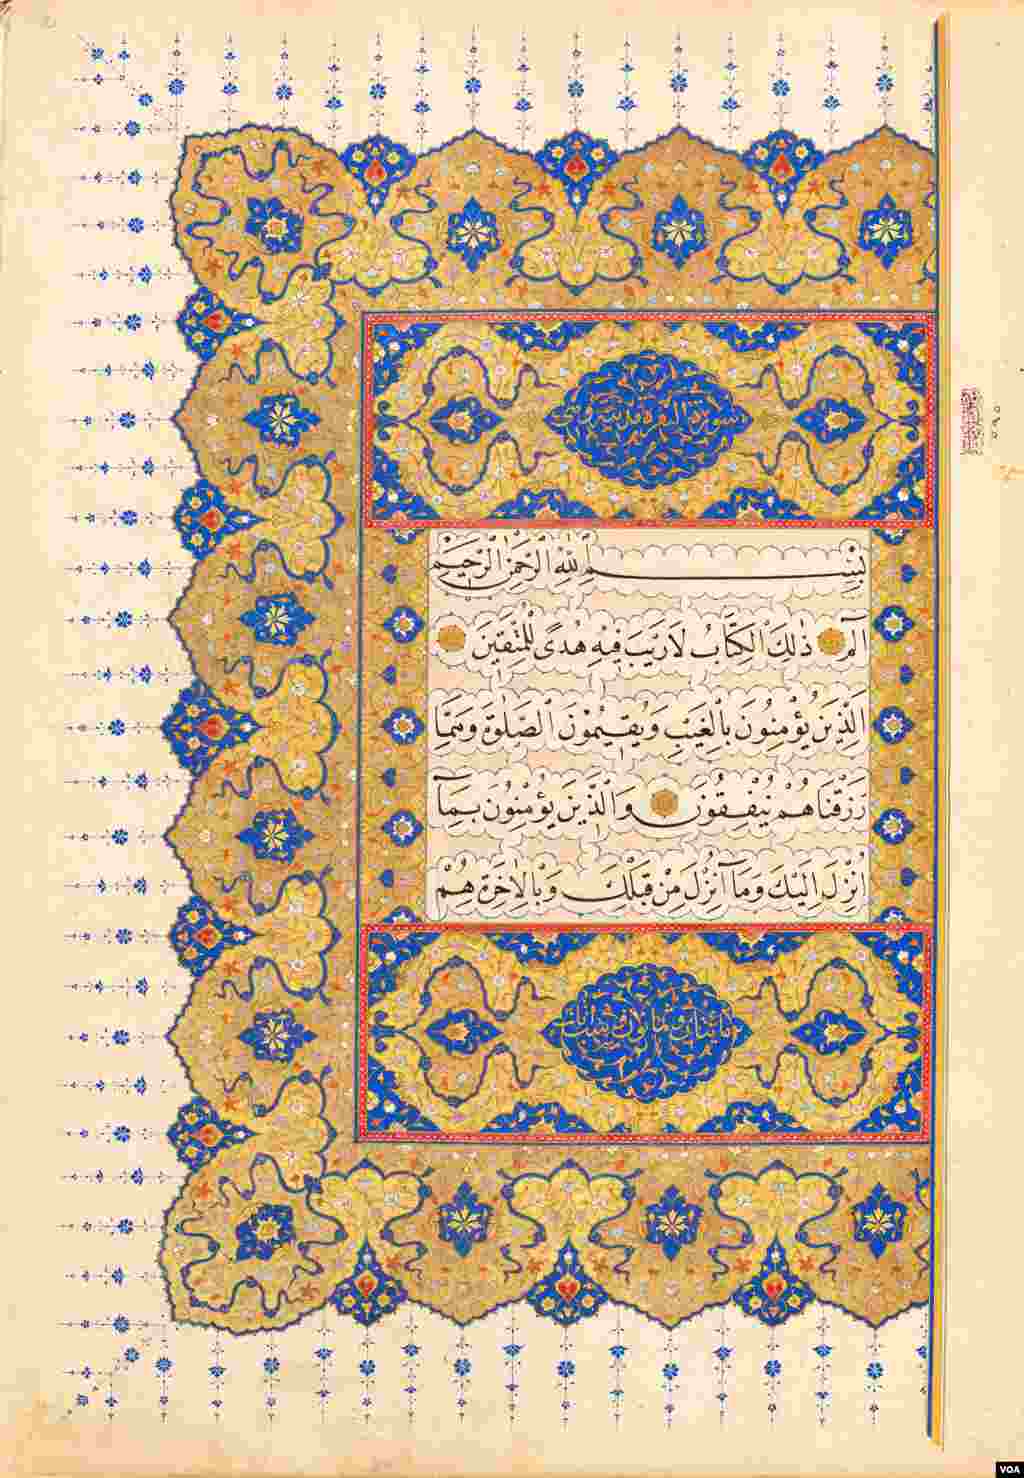 سورة البقرة مدنية وهي
بِسْمِ ٱللهِ ٱلرَّحْمٰنِ ٱلرَّحِيمِ
الٓمٓ ذٰلِكَ ٱلْكِتَابُ لَا رَيْبَ فِيهِ هُدًى لِلْمُتَّقِينَ
ٱلَّذِينَ يُؤْمِنُونَ بِٱلْغَيْبِ وَيُقِيمُونَ ٱلصَّلٰوةَ وَمِمَّا
رَزَقْنَاهُمْ يُنْفِقُونَ وَٱلَّذِينَ يُؤْمِنُونَ بِمَآ
اُنْزِلَ اِلَيْكَ وَمَآ اُنْزِلَ مِنْ قَبْلِكَ وَبِالْاٰخِرَةِ هُمْ
VOA